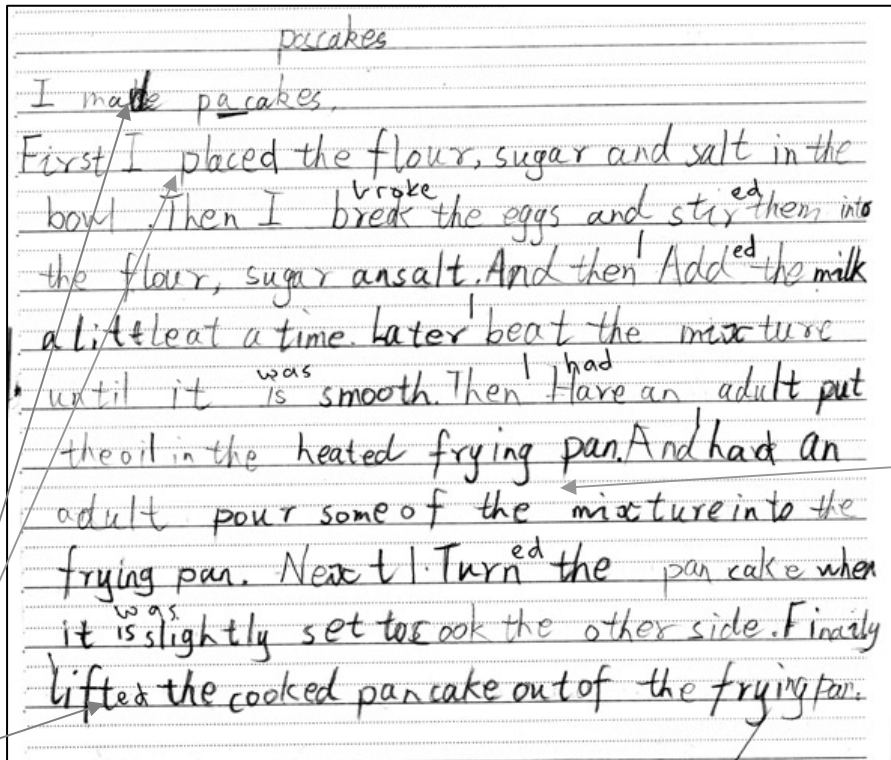 pacakes
I made pacakes.
First I placed the flour, sugar and salt in the
bowl. Then I break broke the eggs and stir ed them into
the flour, sugar ansalt. And then I Add ed the milk
a little at a time. Later I beat the mixture
until it is was smooth. Then I Have had an adult put
the oil in the heated frying pan. And I had an
adult pour some of the mixture into the
frying pan. Next I. Turn ed the pan cake when
it is was slightly set to cook the other side. Finally
lifted the cooked pancake out of the frying pan.